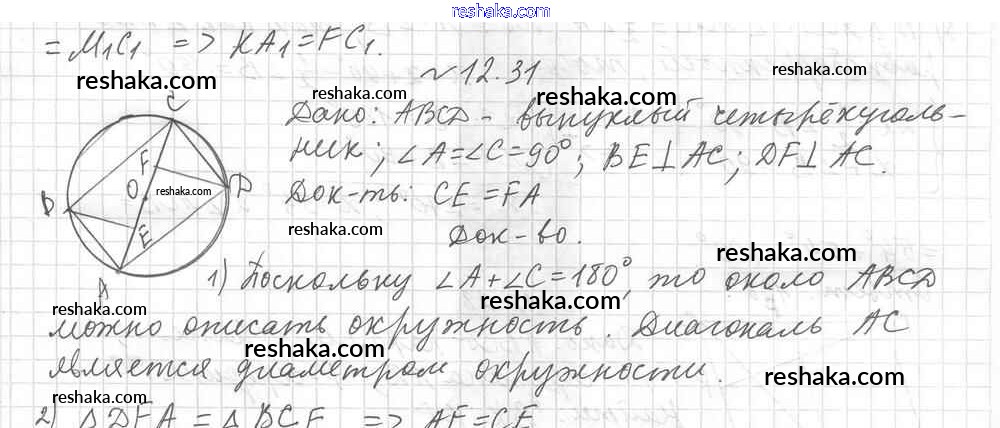 reshaka.com
= M₁C₁ => KA₁ = FC₁.
reshaka.com
reshaka.com
№ 12.31
reshaka.com
Дано: ABCD - выпуклый четырёхуголь-
ник; ∠A=∠C=90°; BE⊥AC; DF⊥AC.
reshaka.com
Док-ть: CE = FA
reshaka.com
Док-во.
reshaka.com
C
F
O
reshaka.com
D
B
E
A
1) Поскольку ∠A+∠C=180°, то около ABCD
reshaka.com
reshaka.com
можно описать окружность. Диагональ AC
reshaka.com
является диаметром окружности.
reshaka.com
reshaka.com
2) △DFA = △BCE => AF=CE